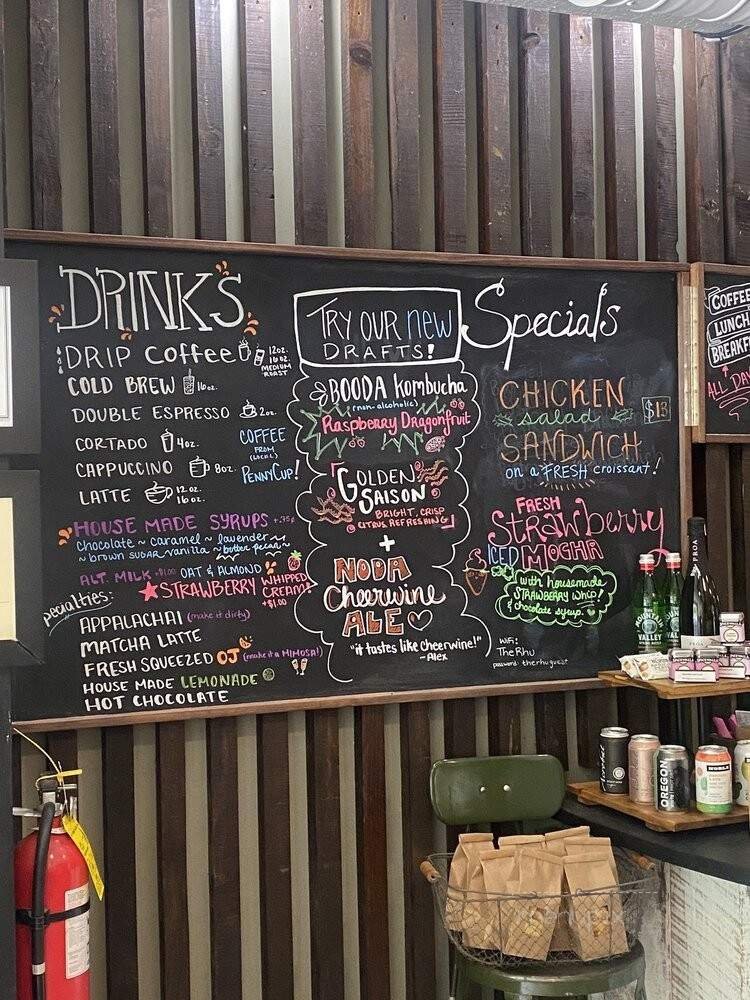 DRINKS
DRIP COFFEE 12oz. 16oz. MEDIUM ROAST
COLD BREW 16oz.
DOUBLE ESPRESSO 2oz.
CORTADO 4oz.
CAPPUCCINO 8oz.
LATTE 12 oz. 16 oz.
COFFEE
FROM
(LOCAL)
PENNYCUP!
HOUSE MADE SYRUPS +.75¢
chocolate ~ caramel ~ lavender ~
~ brown sugar ~ vanilla ~ butter pecan ~
ALT. MILK +$1.00 OAT & ALMOND
STRAWBERRY WHIPPED CREAM! +$1.00
pecialties:
APPALACHAI (make it dirty)
MATCHA LATTE
FRESH SQUEEZED OJ (make it a MIMOSA!)
HOUSE MADE LEMONADE
HOT CHOCOLATE
TRY OUR new
DRAFTS!
BOODA kombucha
(non-alcoholic)
Raspberry Dragonfruit
GOLDEN
SAISON
BRIGHT, CRISP
CITRUS, REFRESHING
+
NODA
Cheerwine
ALE
"it tastes like cheerwine!"
-Alex
Specials
CHICKEN
salad
SANDWICH
$13
on a FRESH croissant!
FRESH
Strawberry
ICED MOCHA
with housemade
STRAWBERRY whip!
& chocolate syrup.
WiFi:
The Rhu
password: therhuguest
COFFEE
LUNCH
BREAKF
ALL DAY
PROA
MOUNTAIN
VALLEY
OREGON
NOBLE